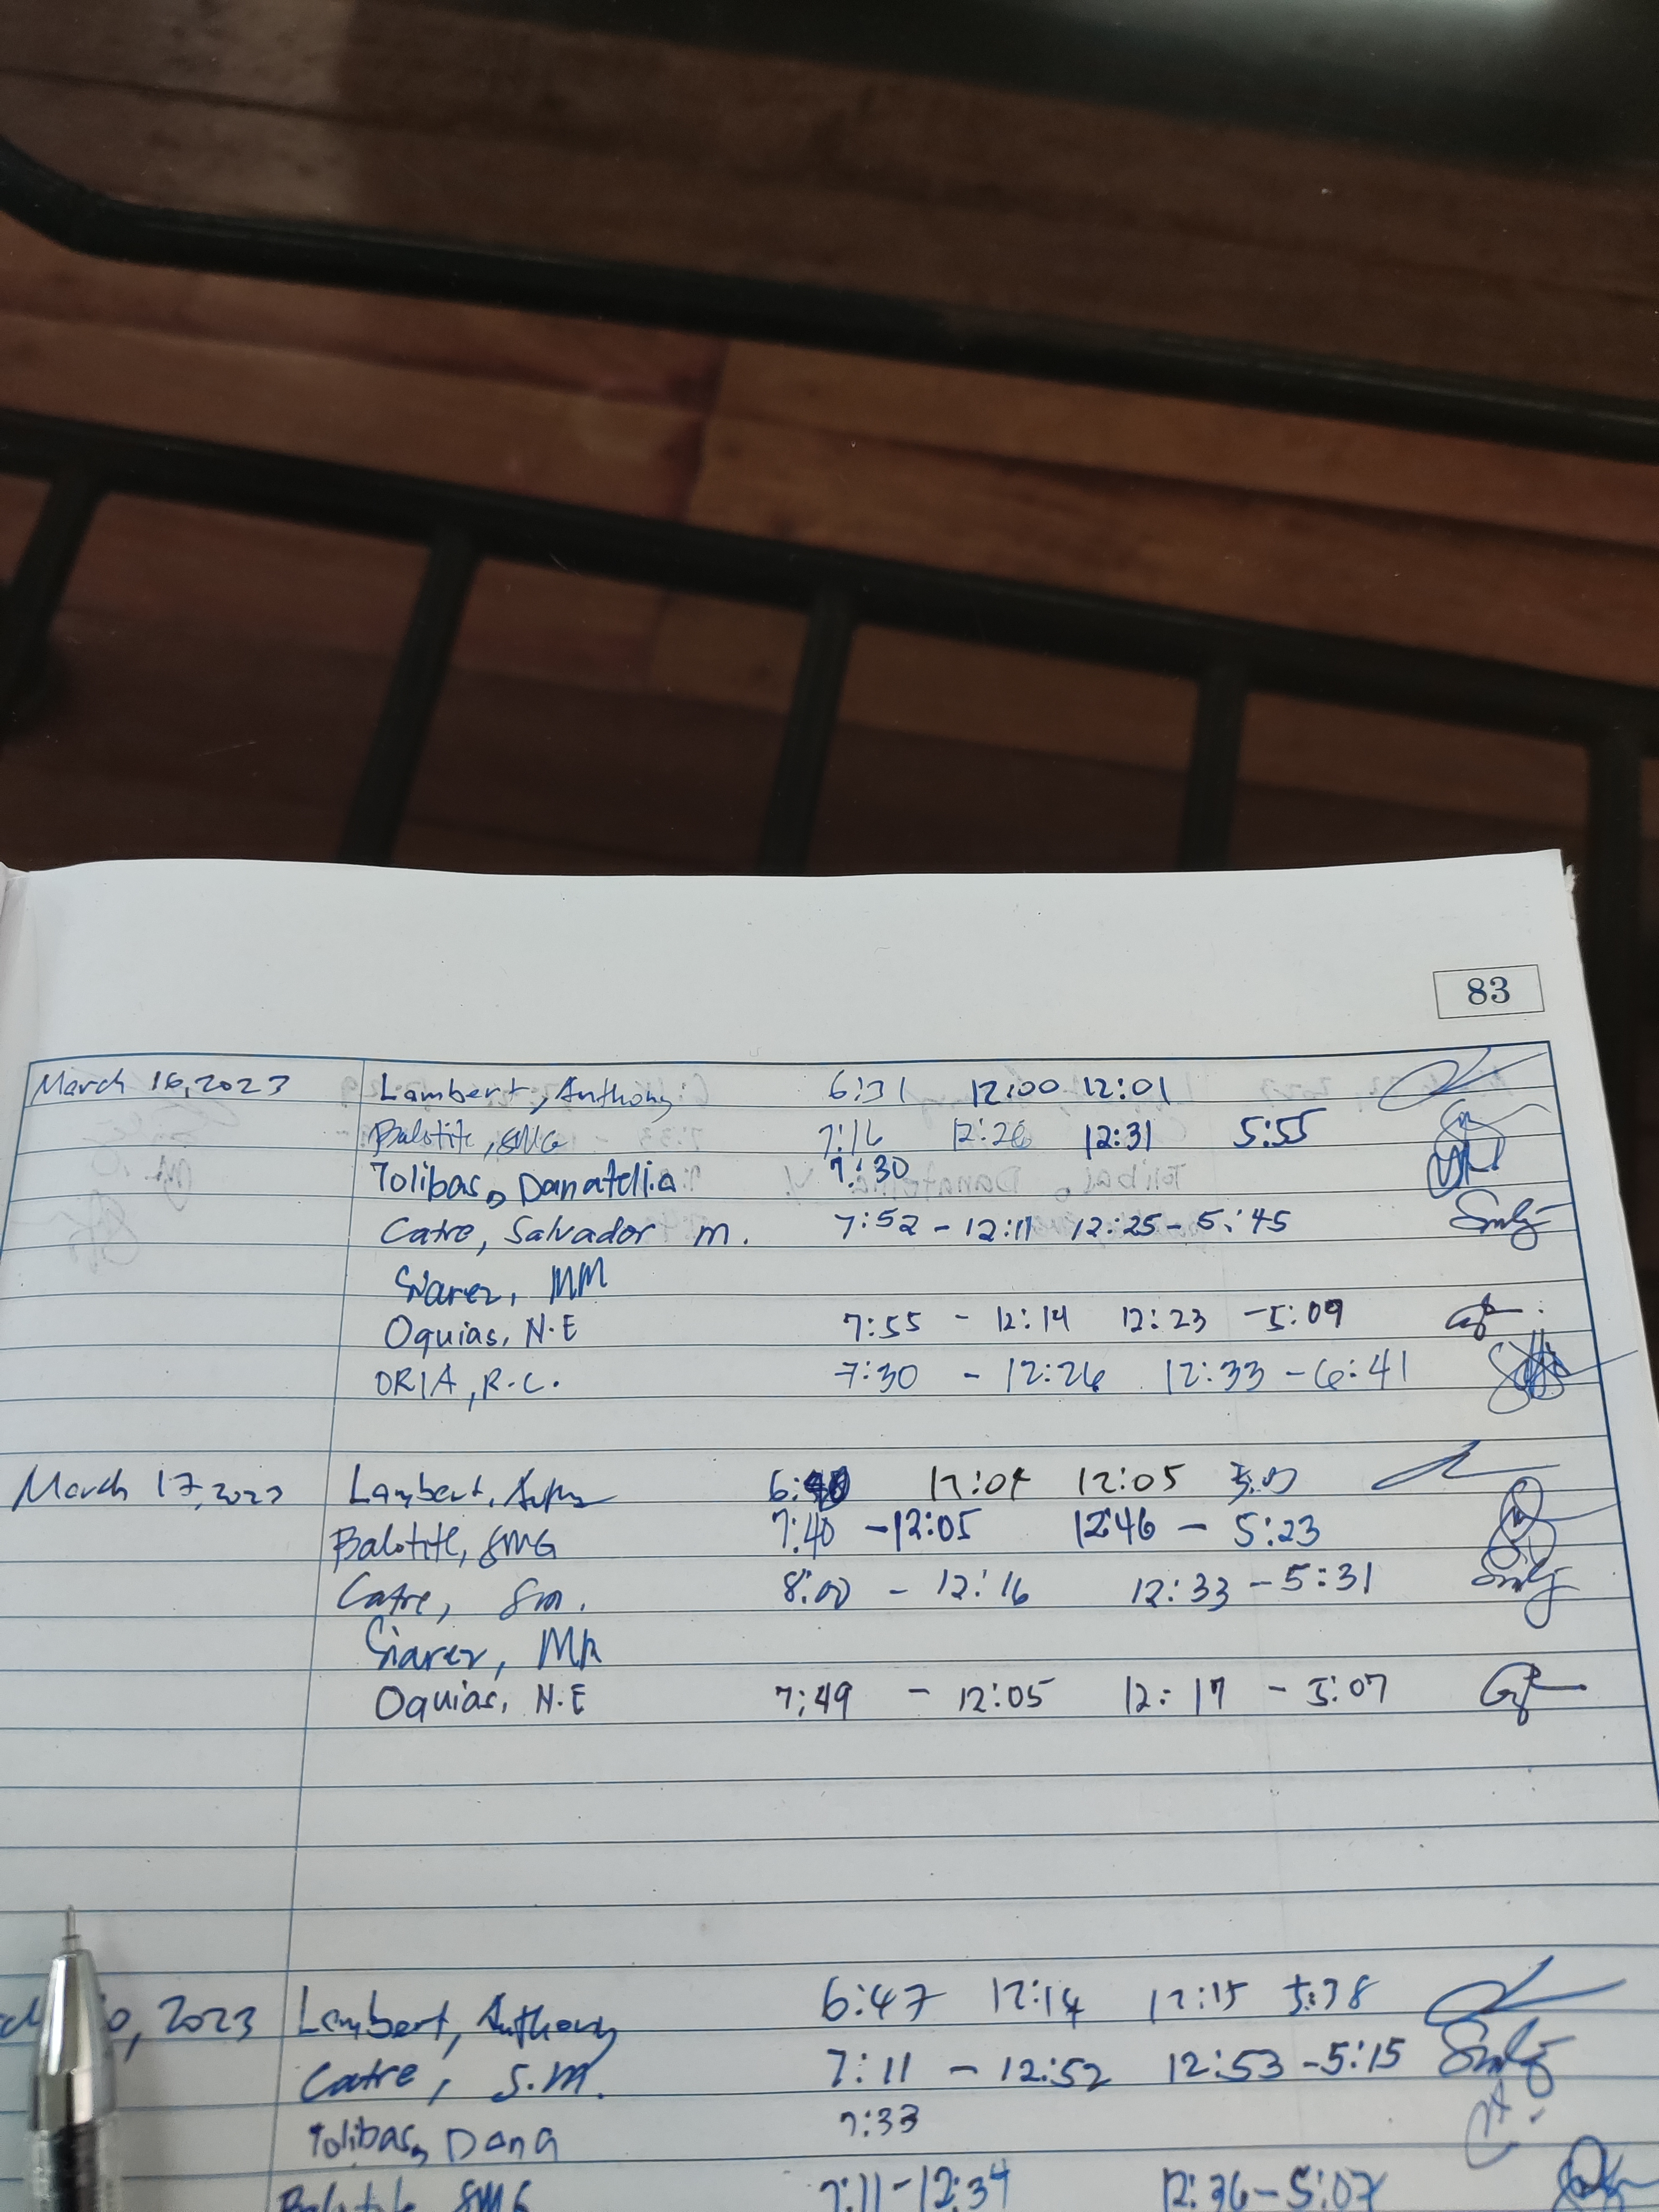 83
March 16, 2023 Lambert, Anthony 6:31 12:00 12:01
Balotite, SMG 7:16 12:26 12:31 5:55
Tolibas, Danatelia 7:30
Catre, Salvador M. 7:52 - 12:11 12:25 - 5:45
Siarez, MM
Oquias, N.E 7:55 - 12:14 12:23 - 5:09
ORIA, R.C. 7:30 - 12:26 12:33 - 6:41
March 17, 2023 Lambert, 12:04 12:05
Balotite, SMG 7:40 - 12:05 12:46 - 5:23
Catre, SM. 8:00 - 12:16 12:33 - 5:31
Siarez,
Oquias, N.E 7:49 - 12:05 12:17 - 5:07
2023 Lambert, Anthony 6:47 12:14 12:15 5:38
Catre, S.M. 7:11 - 12:52 12:53 - 5:15
Tolibas, Dana 7:33
Balotite, SMG 7:11 - 12:34 12:36 - 5:07